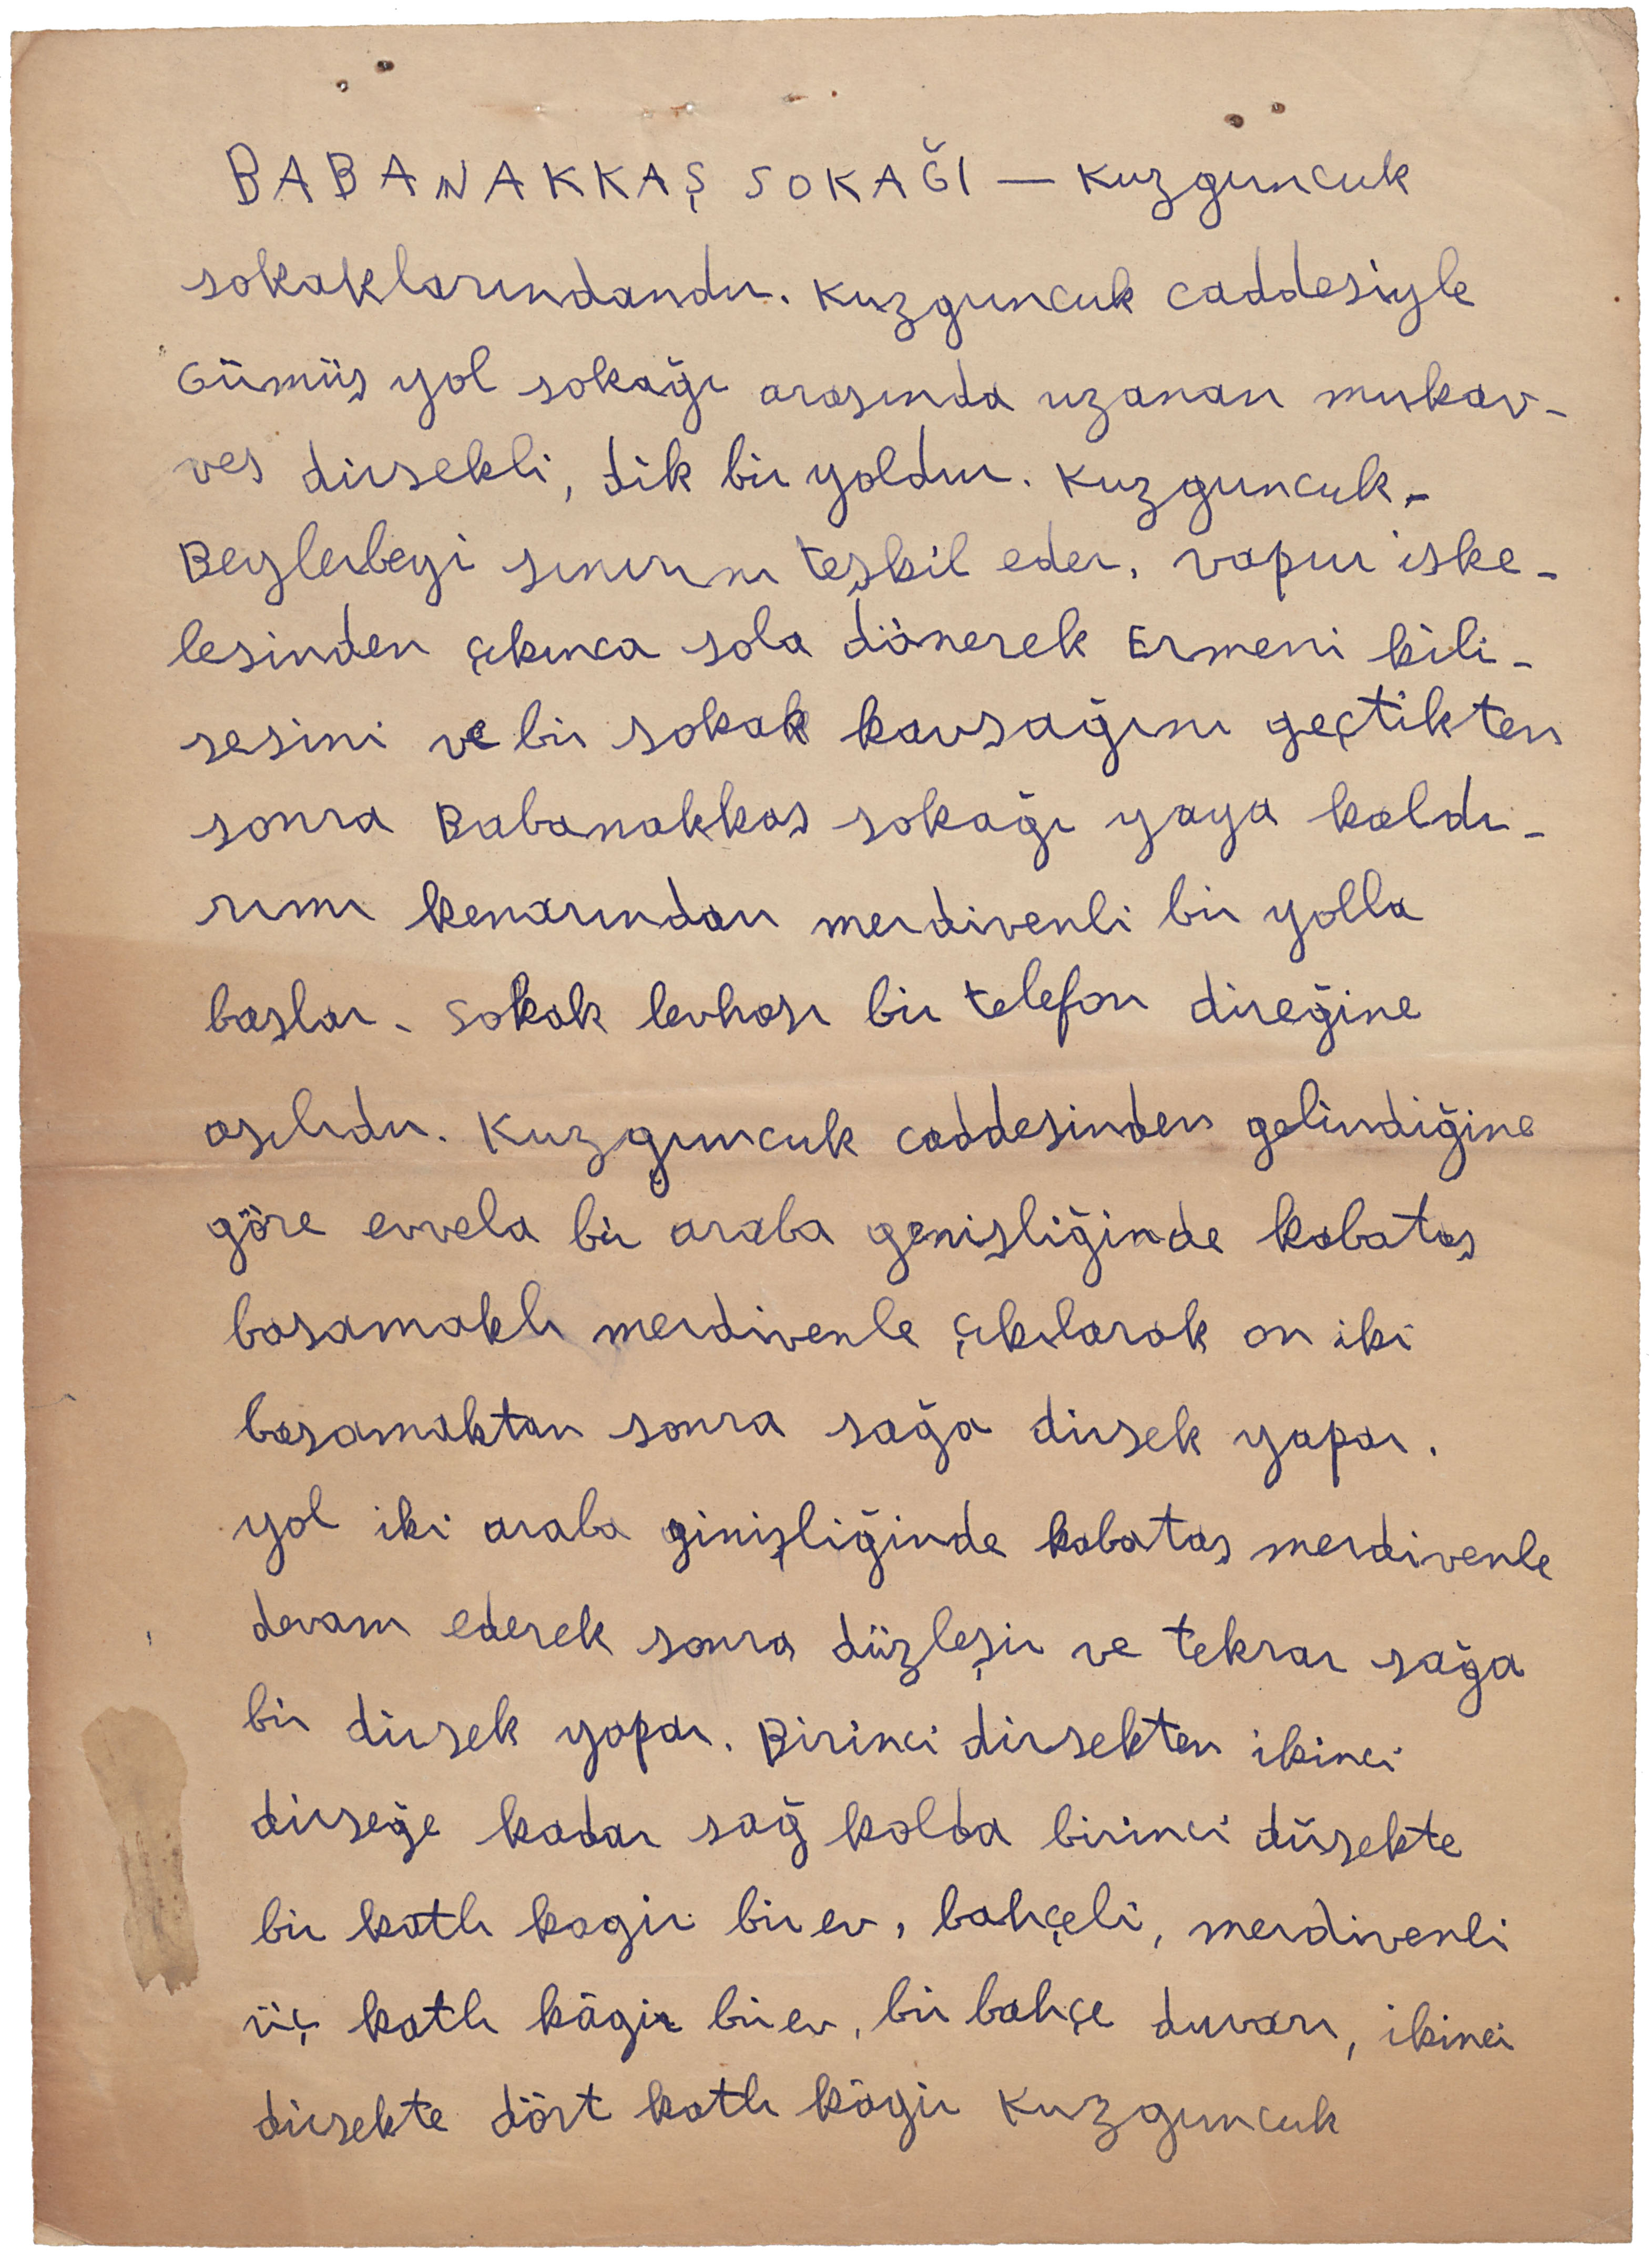 BABANAKKAŞ SOKAĞI — Kuzguncuk
sokaklarındandır. Kuzguncuk caddesiyle
Gümüş yol sokağı arasında uzanan mukav-
ves dirsekli, dik bir yoldur. Kuzguncuk-
Beylerbeyi sınırını teşkil eder. vapur iske-
lesinden çıkınca sola dönerek Ermeni kili-
sesini ve bir sokak kavşağını geçtikten
sonra Babanakkaş sokağı yaya kaldı-
rımı kenarından merdivenli bir yolla
başlar. Sokak levhası bir telefon direğine
asılıdır. Kuzguncuk caddesinden gelindiğine
göre evvela bir araba genişliğinde kabataş
basamaklı merdivenle çıkılarak on iki
basamaktan sonra sağa dirsek yapar.
yol iki araba ginişliğinde kabataş merdivenle
devam ederek sonra düzleşir ve tekrar sağa
bir dirsek yapar. Birinci dirsekten ikinci
dirseğe kadar sağ kolda birinci dirsekte
bir katlı kagir bir ev, bahçeli, merdivenli
üç katlı kâgir bir ev, bir bahçe duvarı, ikinci
dirsekte dört katlı kâgir Kuzguncuk